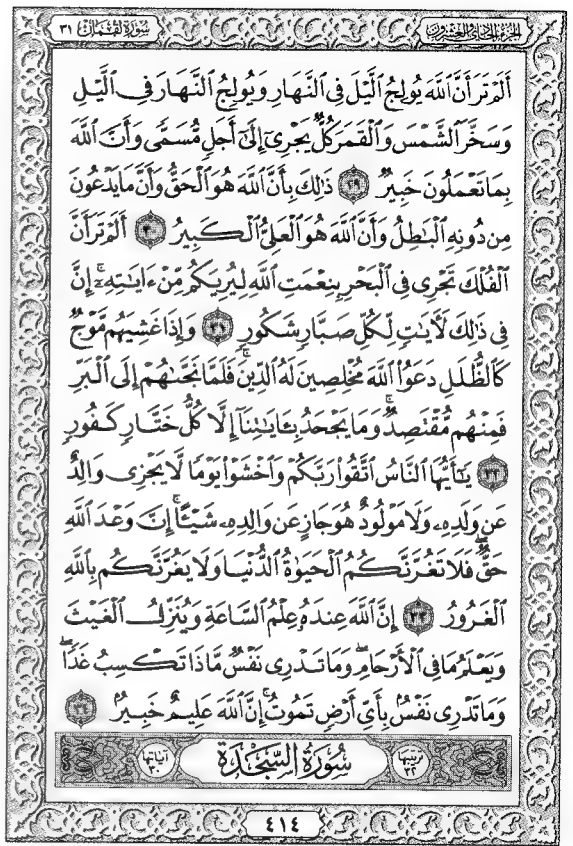 سورة لقمان ٣١
الجزء الحادي والعشرون
أَلَمْ تَرَ أَنَّ ٱللَّهَ يُولِجُ ٱلَّيْلَ فِى ٱلنَّهَارِ وَيُولِجُ ٱلنَّهَارَ فِى ٱلَّيْلِ
وَسَخَّرَ ٱلشَّمْسَ وَٱلْقَمَرَ كُلٌّ يَجْرِىٓ إِلَىٰٓ أَجَلٍ مُّسَمًّى وَأَنَّ ٱللَّهَ
بِمَا تَعْمَلُونَ خَبِيرٌ ٢٩ ذَٰلِكَ بِأَنَّ ٱللَّهَ هُوَ ٱلْحَقُّ وَأَنَّ مَا يَدْعُونَ
مِن دُونِهِ ٱلْبَٰطِلُ وَأَنَّ ٱللَّهَ هُوَ ٱلْعَلِىُّ ٱلْكَبِيرُ ٣٠ أَلَمْ تَرَ أَنَّ
ٱلْفُلْكَ تَجْرِى فِى ٱلْبَحْرِ بِنِعْمَتِ ٱللَّهِ لِيُرِيَكُم مِّنْ ءَايَٰتِهِۦٓ ۚ إِنَّ
فِى ذَٰلِكَ لَءَايَٰتٍ لِّكُلِّ صَبَّارٍ شَكُورٍ ٣١ وَإِذَا غَشِيَهُم مَّوْجٌ
كَٱلظُّلَلِ دَعَوُا۟ ٱللَّهَ مُخْلِصِينَ لَهُ ٱلدِّينَ فَلَمَّا نَجَّىٰهُمْ إِلَى ٱلْبَرِّ
فَمِنْهُم مُّقْتَصِدٌ ۚ وَمَا يَجْحَدُ بِـَٔايَٰتِنَآ إِلَّا كُلُّ خَتَّارٍ كَفُورٍ
٣٢ يَٰٓأَيُّهَا ٱلنَّاسُ ٱتَّقُوا۟ رَبَّكُمْ وَٱخْشَوْا۟ يَوْمًا لَّا يَجْزِى وَالِدٌ
عَن وَلَدِهِۦ وَلَا مَوْلُودٌ هُوَ جَازٍ عَن وَالِدِهِۦ شَيْـًٔا ۚ إِنَّ وَعْدَ ٱللَّهِ
حَقٌّ ۖ فَلَا تَغُرَّنَّكُمُ ٱلْحَيَوٰةُ ٱلدُّنْيَا وَلَا يَغُرَّنَّكُم بِٱللَّهِ
ٱلْغَرُورُ ٣٣ إِنَّ ٱللَّهَ عِندَهُۥ عِلْمُ ٱلسَّاعَةِ وَيُنَزِّلُ ٱلْغَيْثَ
وَيَعْلَمُ مَا فِى ٱلْأَرْحَامِ ۖ وَمَا تَدْرِى نَفْسٌ مَّاذَا تَكْسِبُ غَدًا ۖ
وَمَا تَدْرِى نَفْسٌۢ بِأَىِّ أَرْضٍ تَمُوتُ ۚ إِنَّ ٱللَّهَ عَلِيمٌ خَبِيرٌۢ ٣٤
ترتيبها ٣٢ سُورَةُ السَّجْدَة آياتها ٣٠
٤١٤